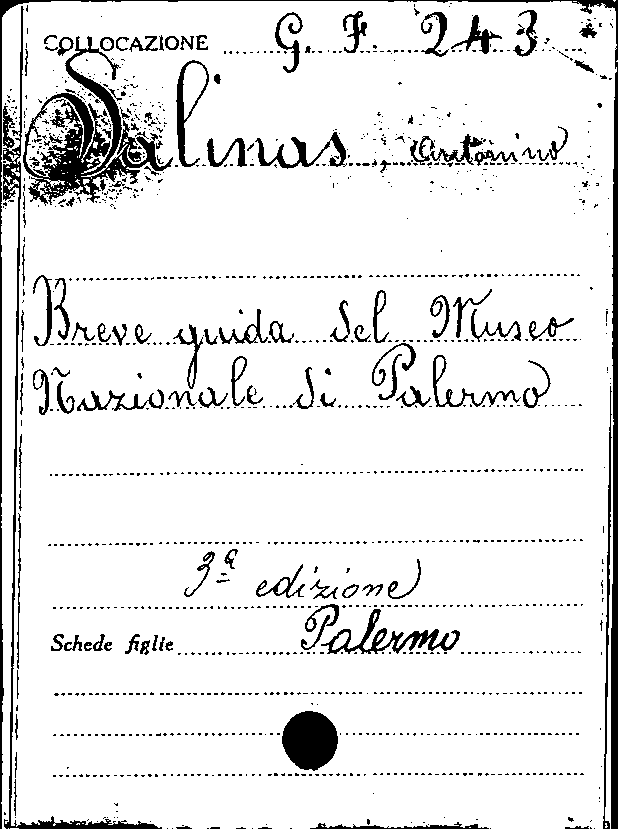 COLLOCAZIONE G. F. 243
Salinas, Antonino
Breve guida del Museo
Nazionale di Palermo
3ª edizione
Schede figlie Palermo